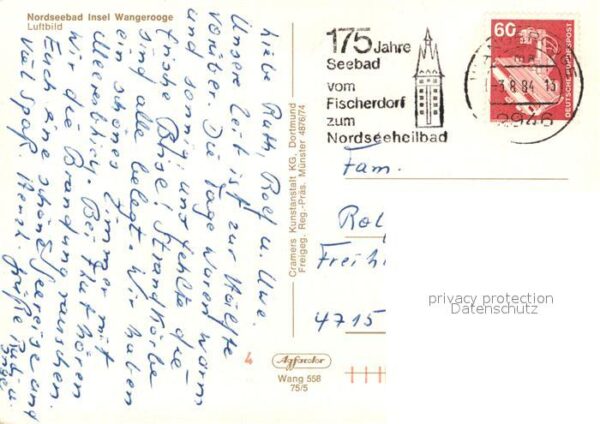 Nordseebad Insel Wangerooge
Luftbild
Liebe Ruth, Rolf u. Uwe.
Unsere Zeit ist zur Hälfte
vorüber. Die Tage waren warm
und sonnig, uns fehlte die
frische Böhse, Strandkörbe
sind alle belegt. Wir haben
ein schönes Zimmer mit
Meeresblick. Bei Flut hören
wir die Brandung rauschen.
Euch eine schöne Seereise und
viel Spaß. Herzl. Grüße
Cramers Kunstanstalt KG. Dortmund
Freigeg. Reg.-Präs. Münster 4876/74
4
Agfacolor
Wang 558
75/5
175 Jahre
Seebad
vom
Fischerdorf
zum
Nordseeheilbad
60
DEUTSCHE BUNDESPOST
-3.8.84
2946
Fam.
Rol
Freih
4715
privacy protection
Datenschutz